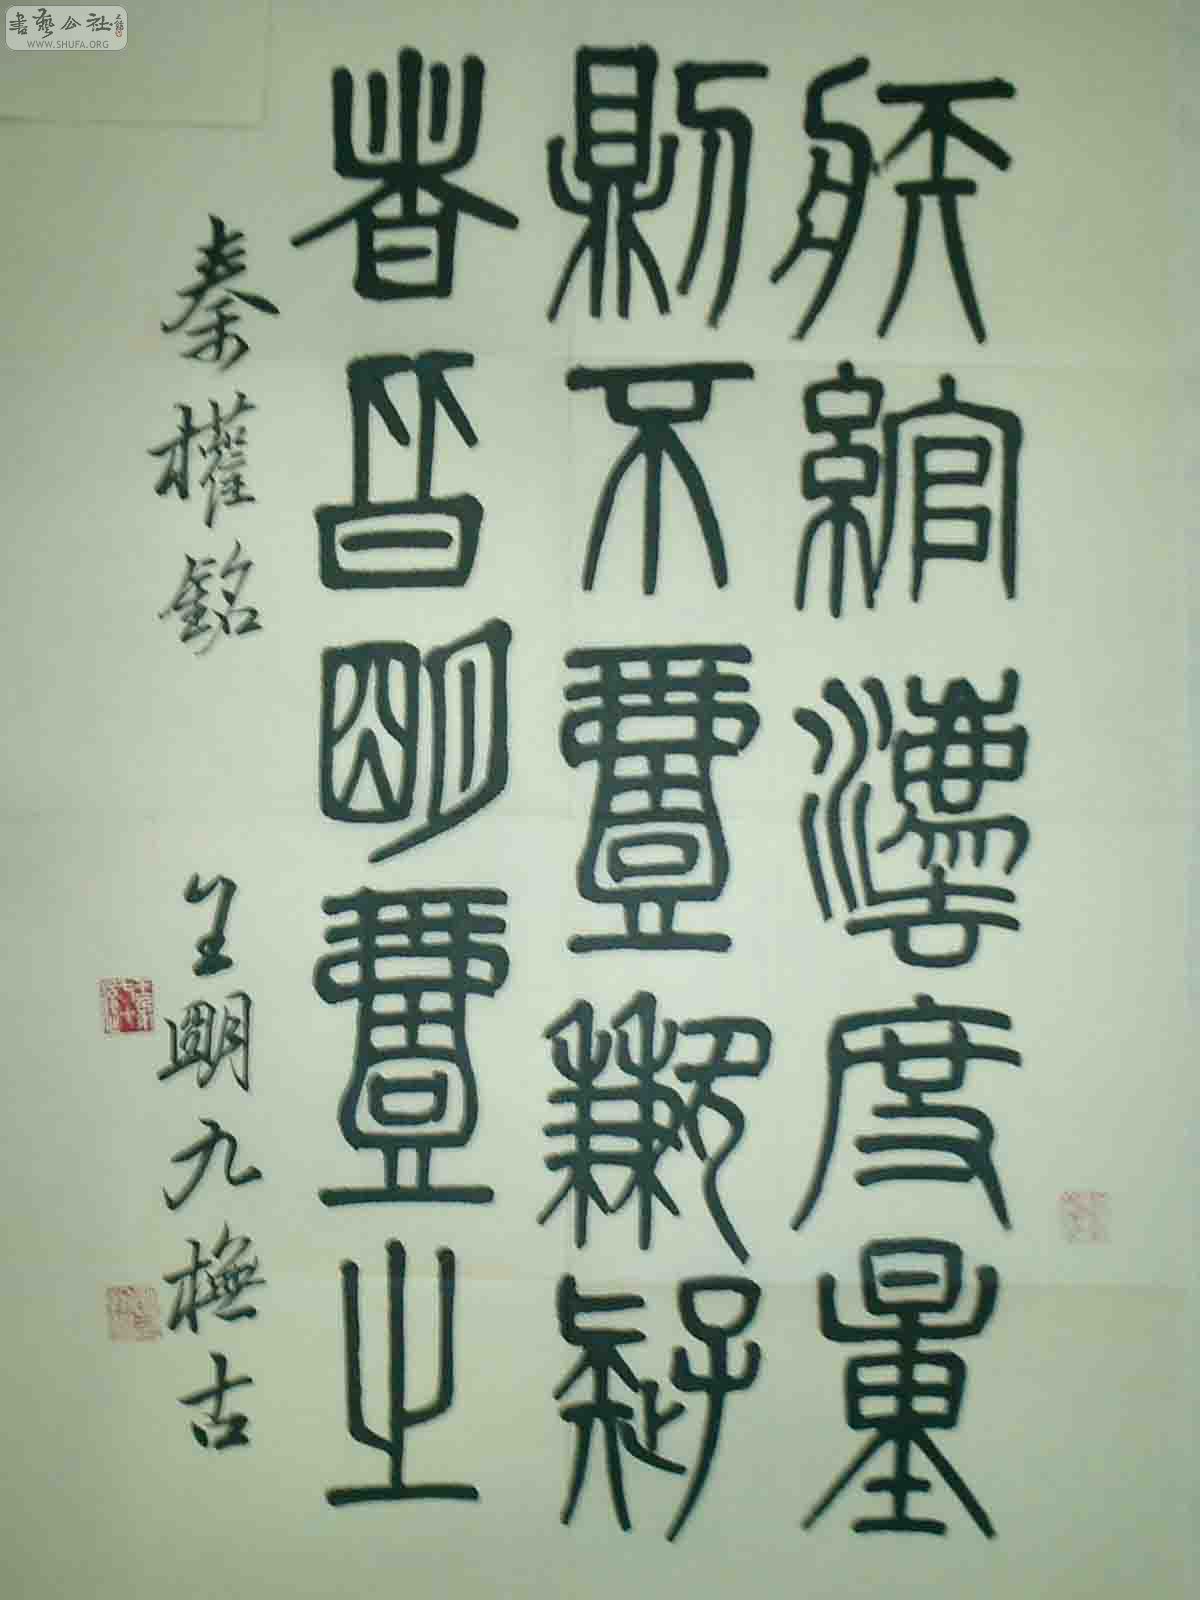 書藝公社
WWW.SHUFA.ORG
狀綰灋度量
則不壹歉疑
者皆明壹之
秦權銘 王明九橅古